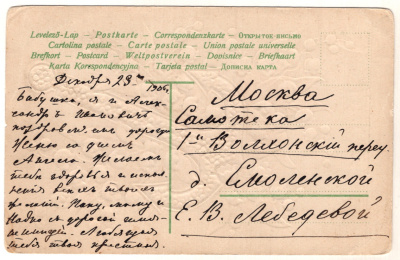 Levelező-Lap — Postkarte — Correspondenskarte — Открытое письмо
Cartolina postale — Carte postale — Union postale universelle
Brefkort — Postcard — Weltpostverein — Dopisnice — Briefkaart
Karta Korespondencyjna — Tarjeta postal — Дописна карта
Декабря 23го 1906.
Бабушка, я и Алек-
сандръ Ивановичъ
поздравляемъ дорогую
Женю со днемъ
Ангела. Желаемъ
тебѣ здоровья и испол-
неній всѣхъ твоихъ
желаній. Папу, маму и
Надю съ дорогой имя-
нинницей. Любящая
тебя твоя крестная.
Москва
Самотека
1й Волхонскій переу.
д. Смоленской
Е. В. Лебедевой